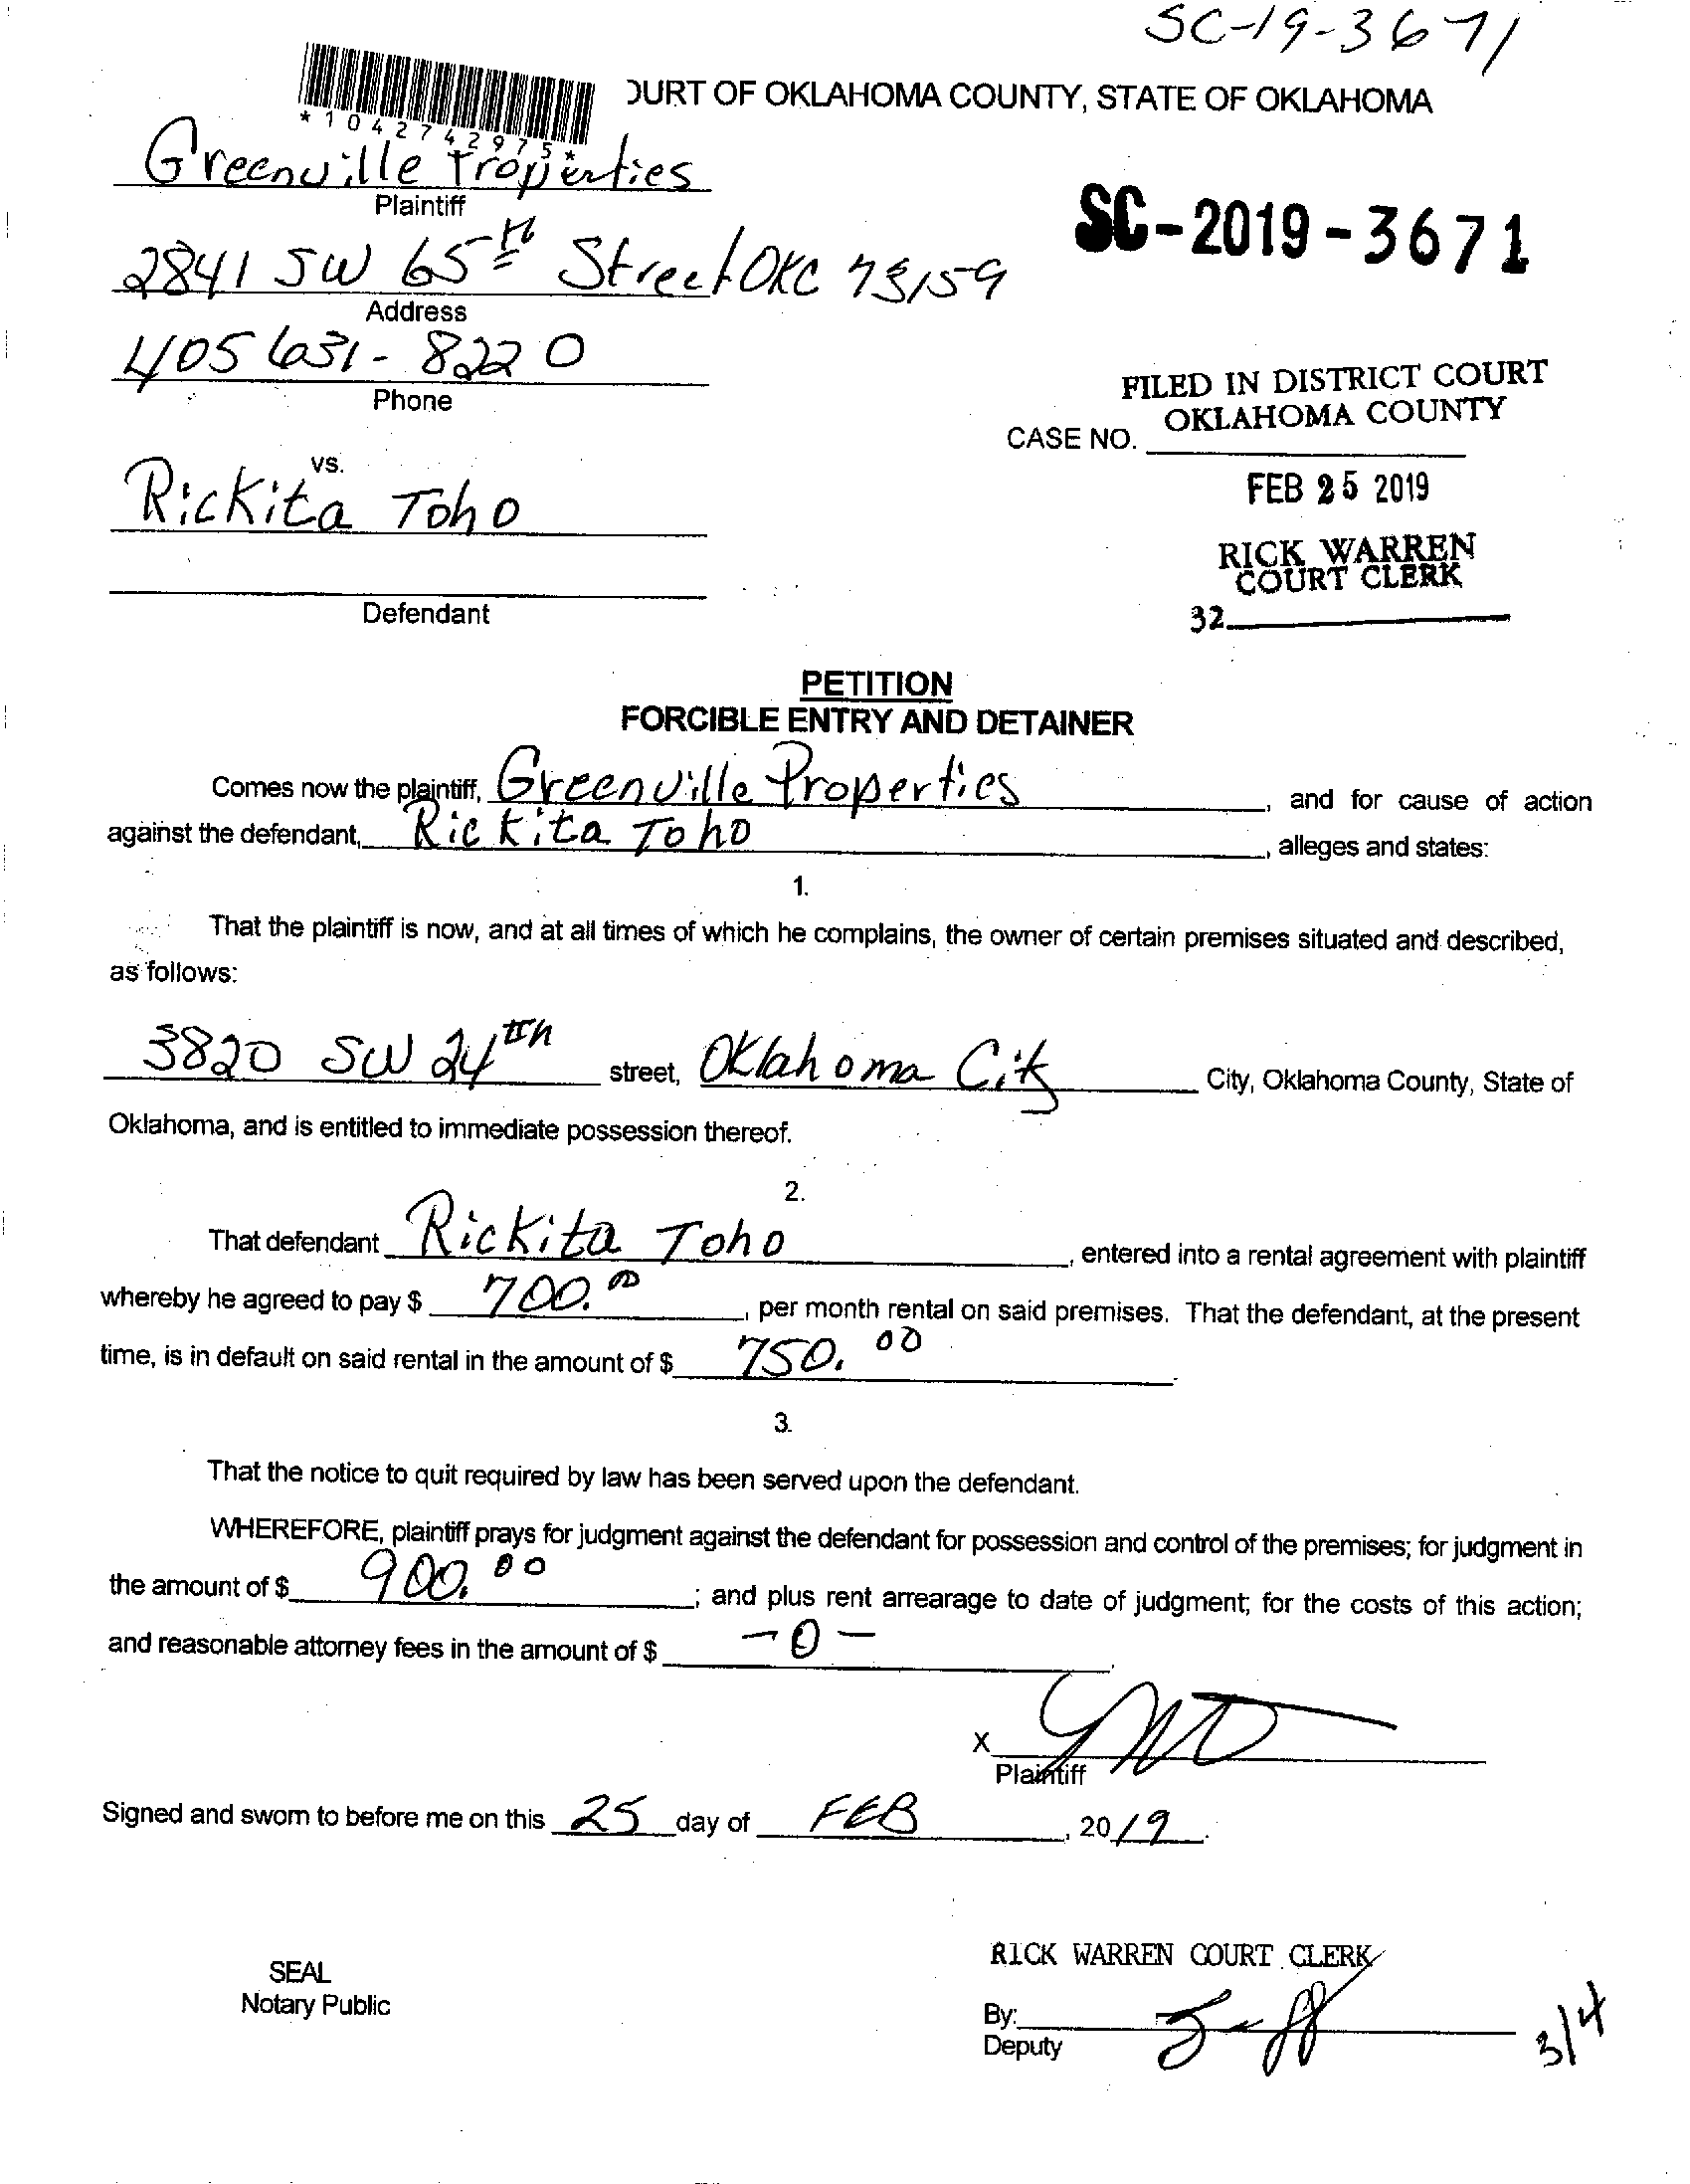 SC-19-3671
OURT OF OKLAHOMA COUNTY, STATE OF OKLAHOMA
*1042742975*
Greenville Properties
Plaintiff
SC-2019-3671
2841 SW 65th Street OKC 73159
Address
405 631-8220
Phone
FILED IN DISTRICT COURT
OKLAHOMA COUNTY
CASE NO.
vs.
Rickita Toho
FEB 25 2019
RICK WARREN
COURT CLERK
Defendant
32
PETITION
FORCIBLE ENTRY AND DETAINER
Comes now the plaintiff, Greenville Properties, and for cause of action
against the defendant, Rickita Toho, alleges and states:
1.
That the plaintiff is now, and at all times of which he complains, the owner of certain premises situated and described,
as follows:
3820 SW 24th street, Oklahoma City City, Oklahoma County, State of
Oklahoma, and is entitled to immediate possession thereof.
2.
That defendant Rickita Toho, entered into a rental agreement with plaintiff
whereby he agreed to pay $ 700.00, per month rental on said premises. That the defendant, at the present
time, is in default on said rental in the amount of $ 750.00.
3.
That the notice to quit required by law has been served upon the defendant.
WHEREFORE, plaintiff prays for judgment against the defendant for possession and control of the premises; for judgment in
the amount of $ 900.00; and plus rent arrearage to date of judgment; for the costs of this action;
and reasonable attorney fees in the amount of $ -0-.
X
Plaintiff
Signed and sworn to before me on this 25 day of FEB, 2019.
RICK WARREN COURT CLERK
SEAL
Notary Public
By:
Deputy
3/4